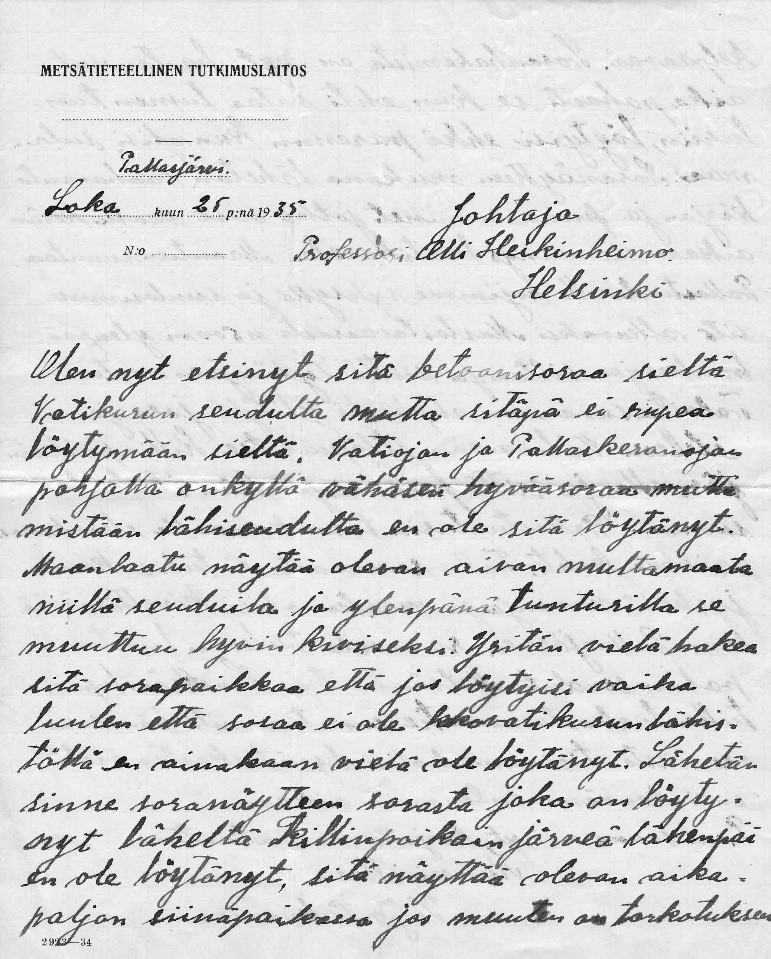 METSÄTIETEELLINEN TUTKIMUSLAITOS
Pallasjärvi.
Loka kuun 25 p:nä 1935.
N:o
Johtaja
Professori Olli Heikinheimo.
Helsinki
Olen nyt etsinyt sitä betoonisoraa sieltä
Vatikurun seudulta mutta sitäpä ei rupea
löytymään sieltä. Vatiojan ja Pallaskeronojan
pohjalla onkyllä vähäsen hyvääsoraa mutta
mistään lähiseudulta en ole sitä löytänyt.
Maanlaatu näytää olevan aivan multamaata
niillä seuduila ja ylenpänä tunturilla se
muuttuu hyvin kiviseksi. Yritän vielä hakea
sitä sorapaikkaa että jos löytyisi vaika
luulen että soraa ei ole kovatikurunlähis-
töllä en ainakaan vielä ole löytänyt. Lähetän
sinne soranäytteen sorasta joka on löyty-
nyt läheltä Killinpoikain järveä lähenpää
en ole löytänyt, sitä näyttää olevan aika-
paljon siinäpaikassa jos muuten on tarkotuksen
2923—34